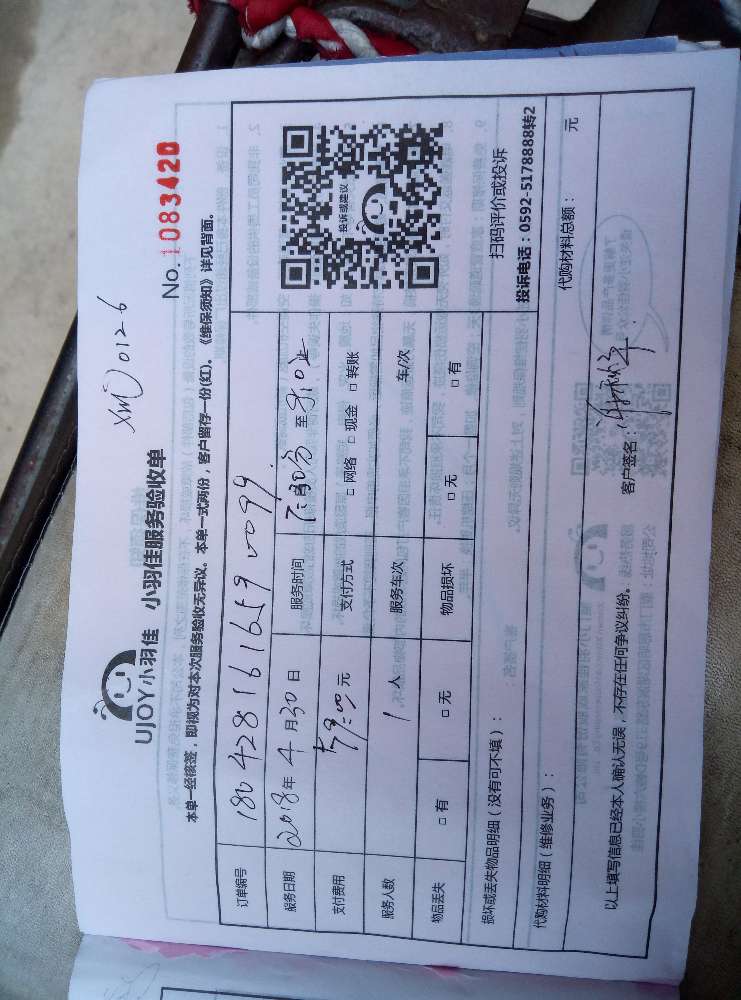 XM 0126
UJOY小羽佳 小羽佳服务验收单
No. 1083420
本单一经核签，即视为对本次服务验收无异议。本单一式两份，客户留存一份(红)。《维保须知》详见背面。
订单编号 180428161659 0099
服务日期 2018年 4月30日 服务时间 至
支付费用 元 支付方式 □ 网络 □ 现金 □ 转账
服务人数 1 人 服务车次 车/次
物品丢失 □ 有 □ 无 物品损坏 □ 无 □ 有
投诉或建议
扫码评价或投诉
投诉电话：0592-5178888转2
损坏或丢失物品明细（没有可不填）：
代购材料明细（维修业务）： 代购材料总额： 元
以上填写信息已经本人确认无误，不存在任何争议纠纷。 客户签名：